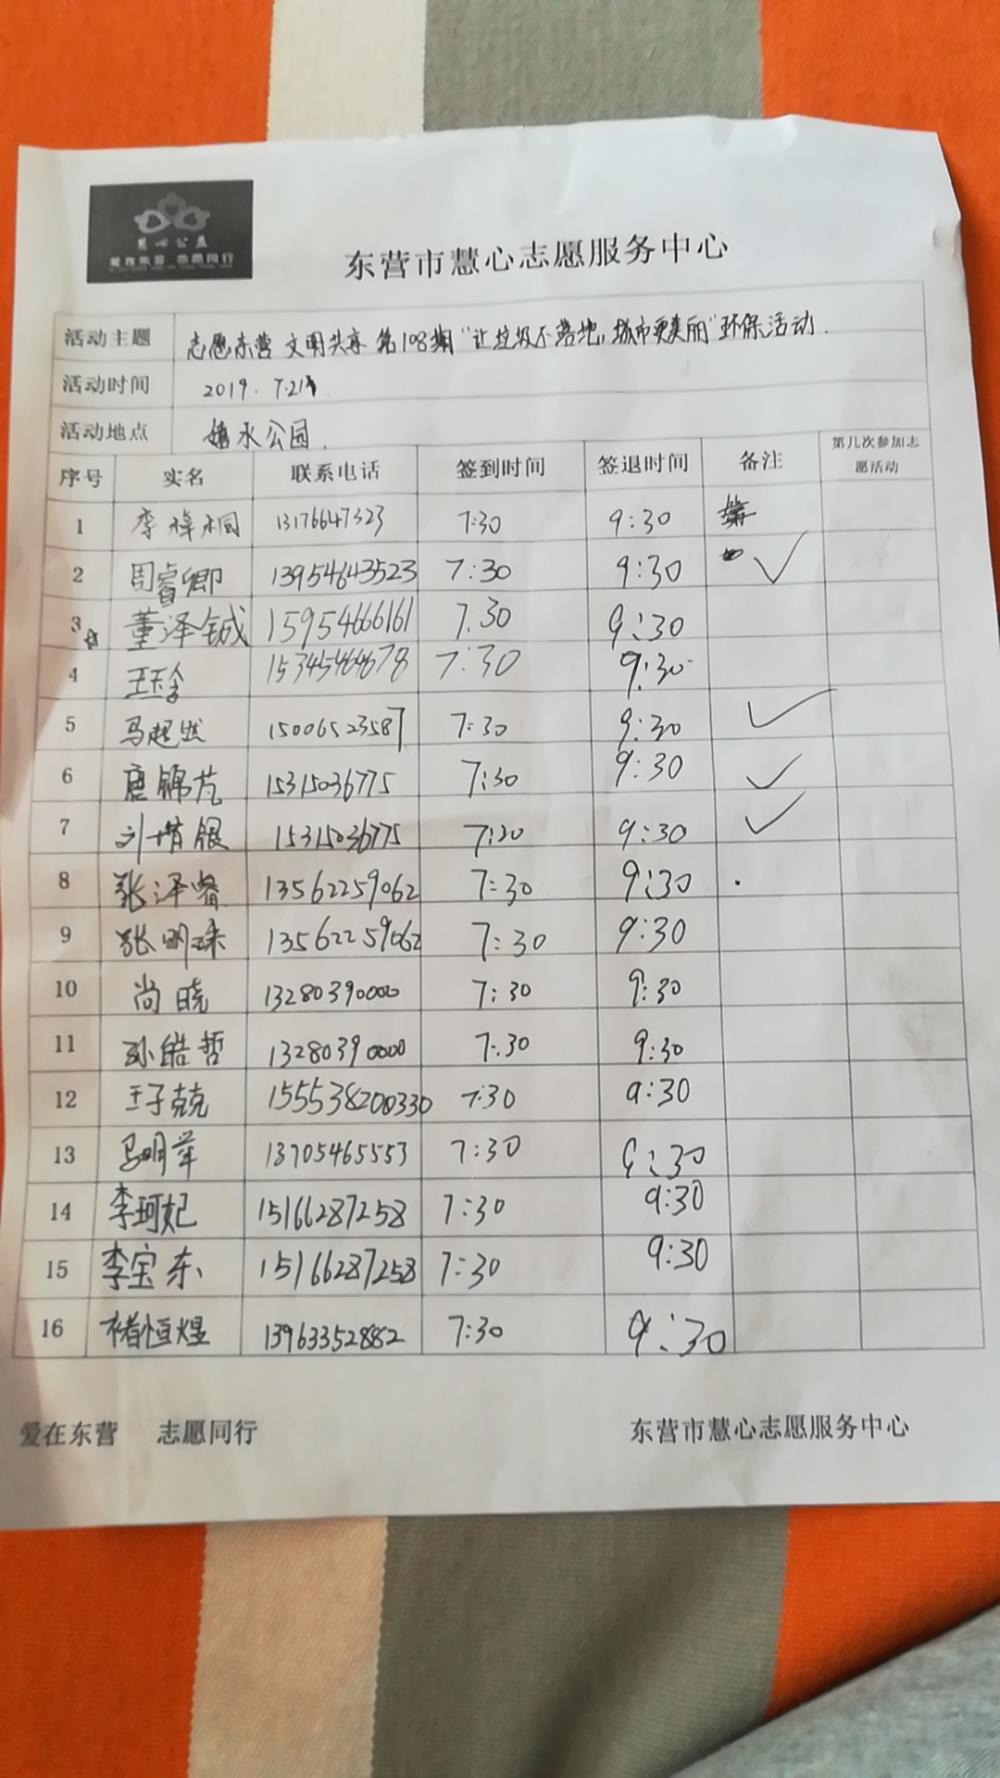 慧心公益
爱在东营 志愿同行
东营市慧心志愿服务中心
活动主题 志愿东营 文明共享 第108期"让垃圾不落地,城市更美丽"环保活动.
活动时间 2019.7.21
活动地点 水公园.
序号 实名 联系电话 签到时间 签退时间 备注 第几次参加志
愿活动
1 李梓桐 13176647323 7:30 9:30
2 周睿卿 13954643523 7:30 9:30 ✓
3 董泽铖 15954666161 7:30 9:30
4 王玉 15345464678 7:30 9:30
5 马起 15006523587 7:30 9:30 ✓
6 唐锦芃 15315036775 7:30 9:30 ✓
7 刘 银 15315036775 7:20 9:30 ✓
8 张泽睿 13562259062 7:30 9:30
9 张明珠 13562259062 7:30 9:30
10 尚晓 13280390000 7:30 9:30
11 孙皓哲 13280390000 7:30 9:30
12 王子克 155538200330 7:30 9:30
13 马明萍 13705465553 7:30 9:30
14 李珂妃 15166287258 7:30 9:30
15 李宝东 15166287258 7:30 9:30
16 褚恒煜 13963352882 7:30 9:30
爱在东营 志愿同行 东营市慧心志愿服务中心